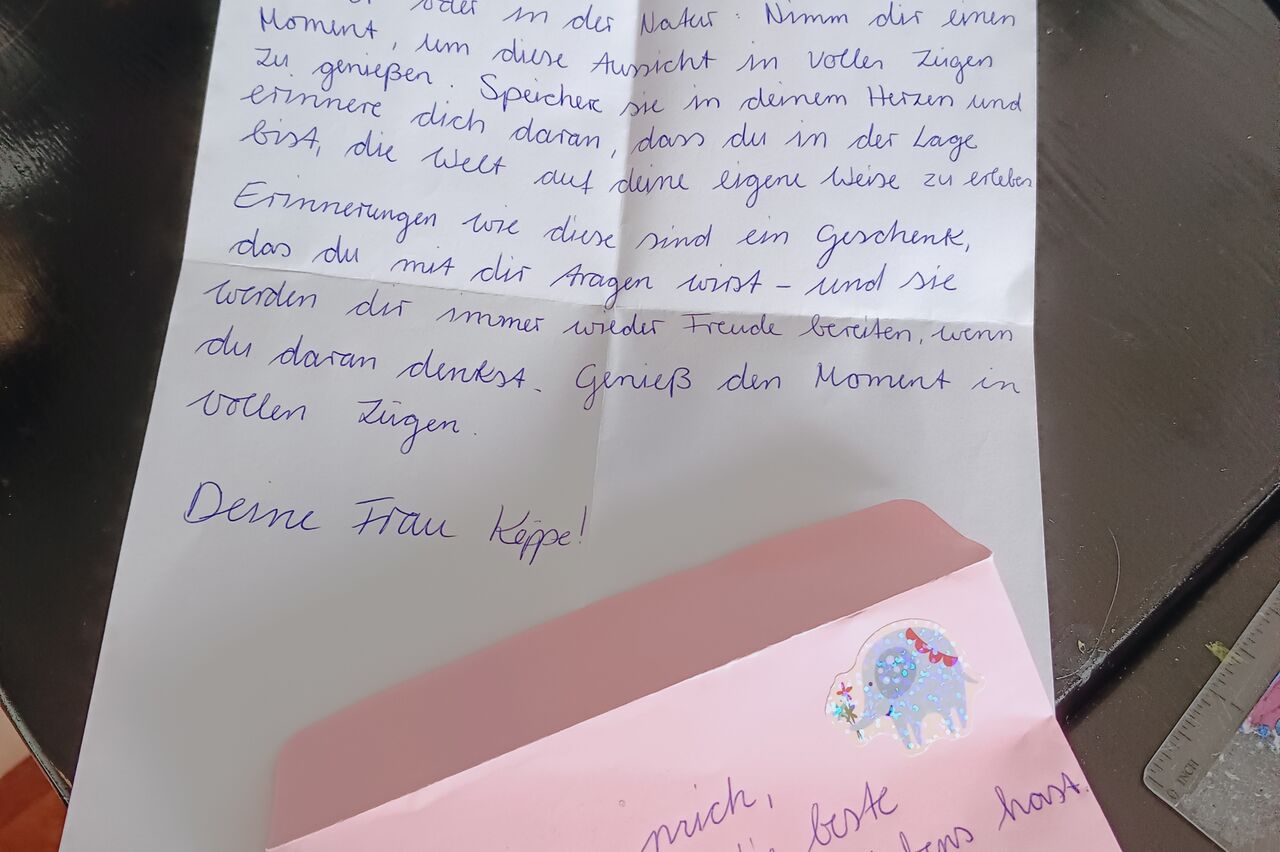 oder in der Natur: Nimm dir einen
Moment, um diese Aussicht in vollen Zügen
zu genießen. Speichere sie in deinem Herzen und
erinnere dich daran, dass du in der Lage
bist, die Welt auf deine eigene Weise zu erleben
Erinnerungen wie diese sind ein Geschenk,
das du mit dir tragen wirst – und sie
werden dir immer wieder Freude bereiten, wenn
du daran denkst. Genieß den Moment in
vollen Zügen.
Deine Frau Keppe!
mich,
beste
hast.
INCH